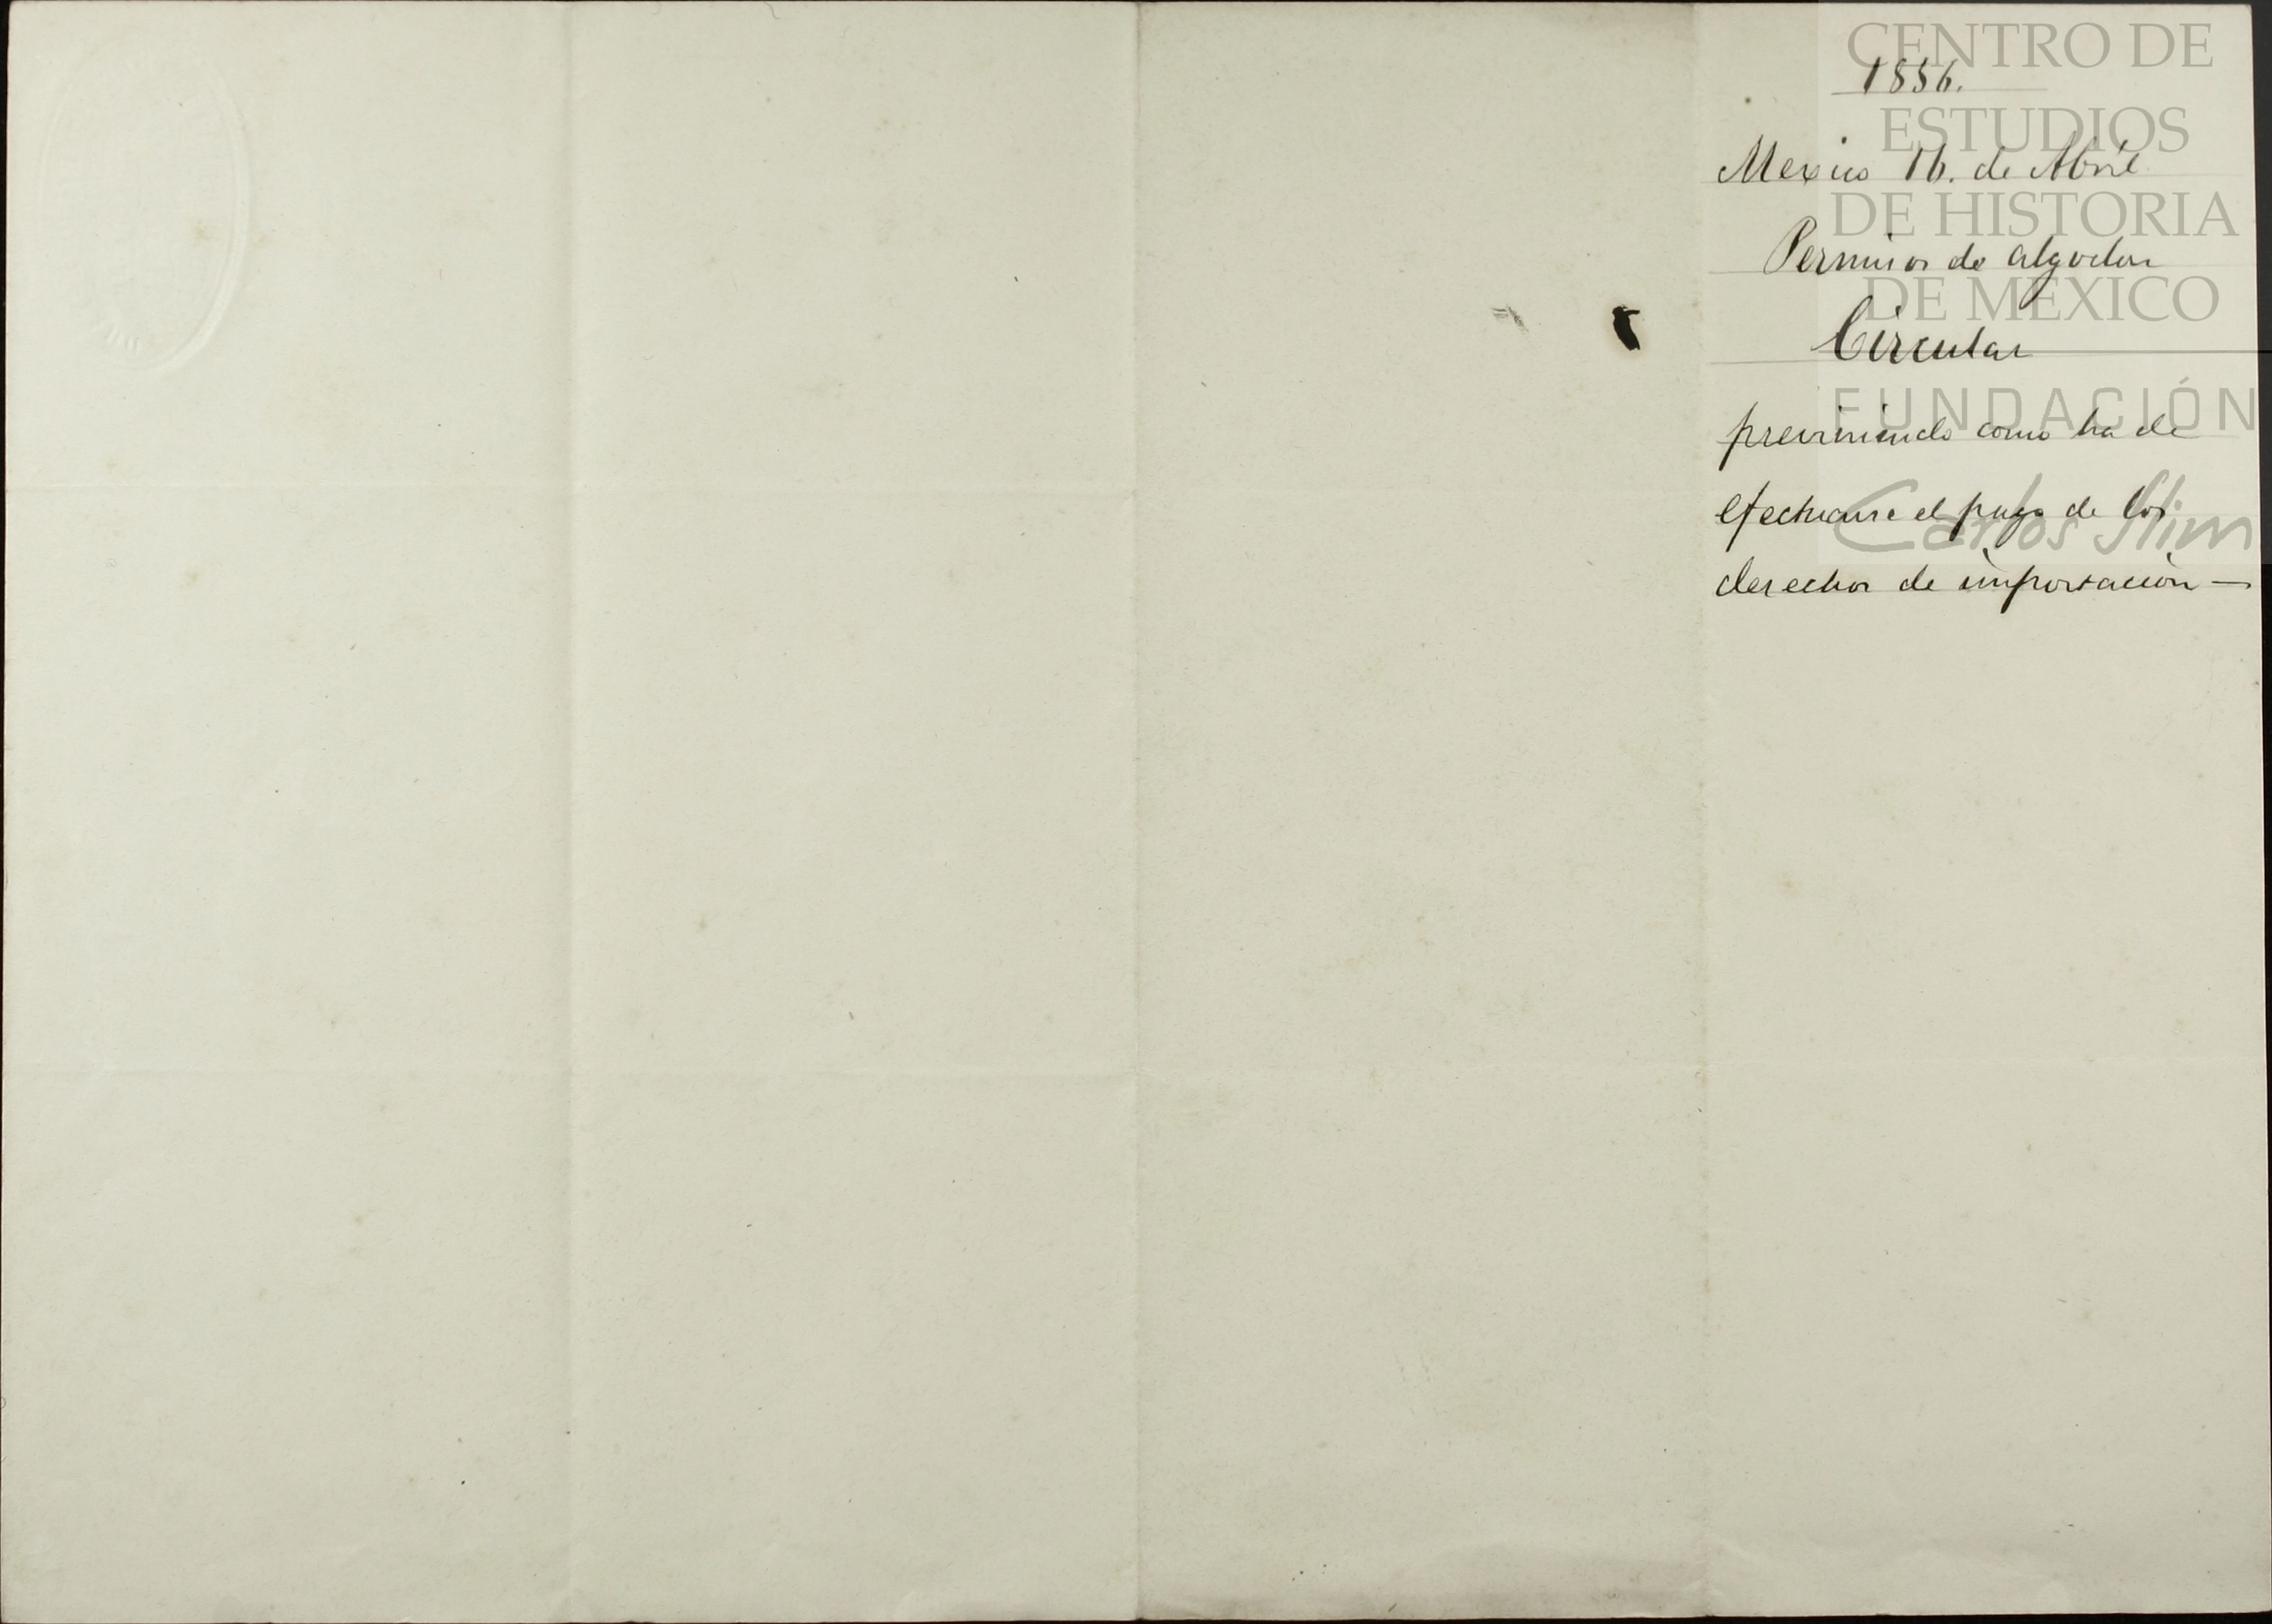 CENTRO DE
ESTUDIOS
DE HISTORIA
DE MEXICO
FUNDACIÓN
Carlos Slim
1856.
Mexico 16. de Abril
Permisos de algodon
Circular
previniendo como ha de
efectuarse el pago de los
derechos de importacion —